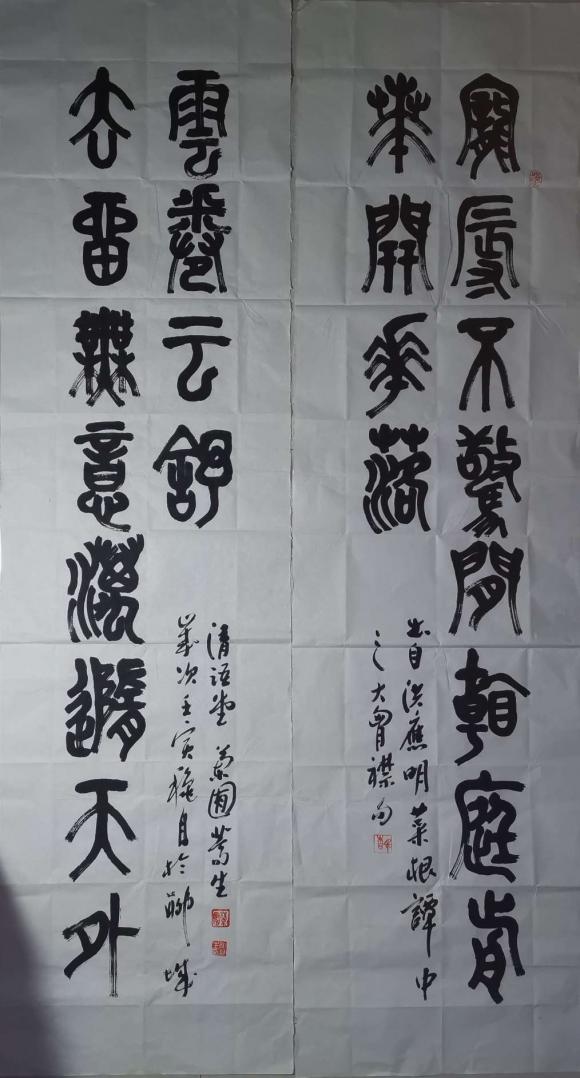 寵辱不驚閒看庭前
華開花落
出自洪應明菜根譚中
之大胷襟句
去留無意漫隨天外
雲卷云舒
歲次壬寅穐月於聊城
清語堂 蘭圃